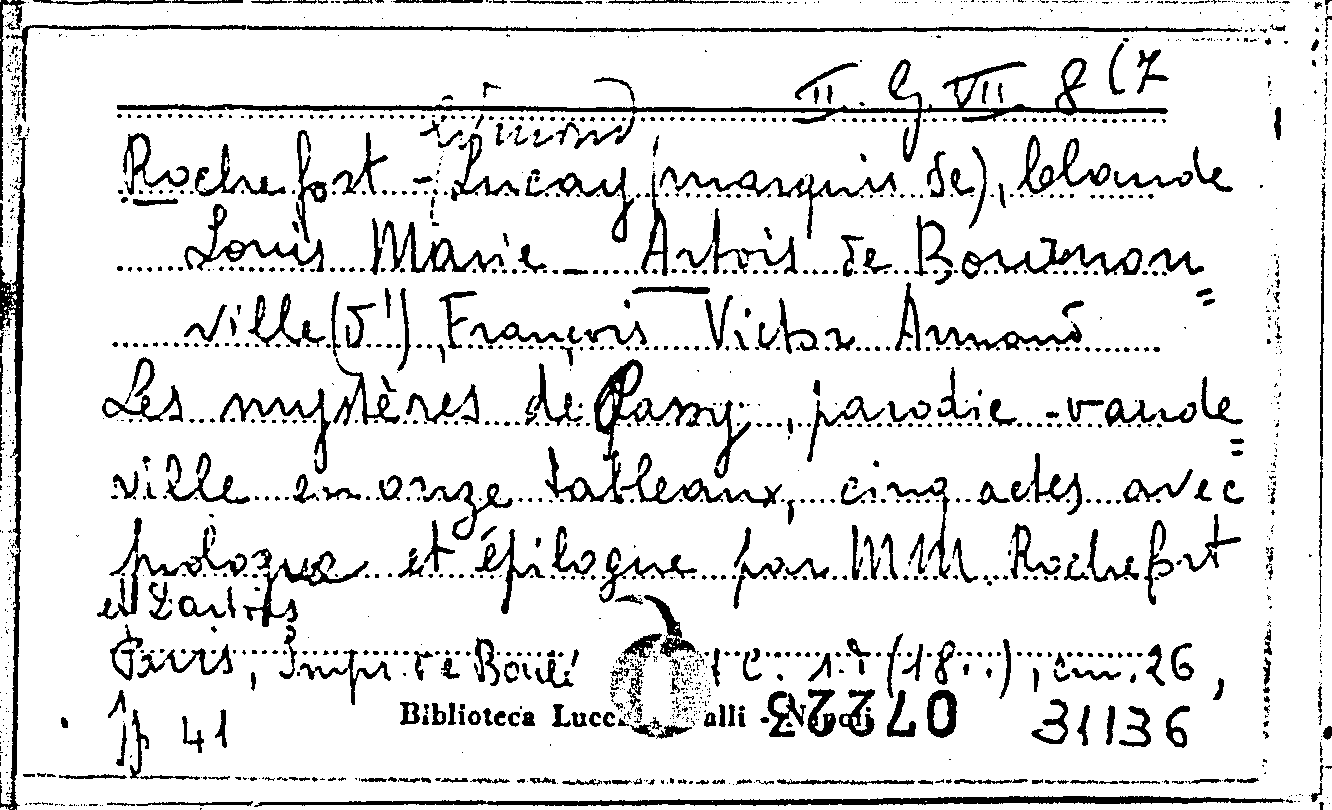 II. G. VII. 8 (7
Edmond
Rochefort - Luçay (marquis de), Claude
Louis Marie - Artois de Bournon=
ville (d'), François Victor Armand
Les mystères de Passy, parodie-vaude=
ville en onze tableaux, cinq actes avec
prologue et épilogue par MM. Rochefort
et Dartois
Paris, Impr. de Boulé et C. s.d (18..), cm. 26,
pp 41
Biblioteca Lucc alli - Napoli 07223 31136